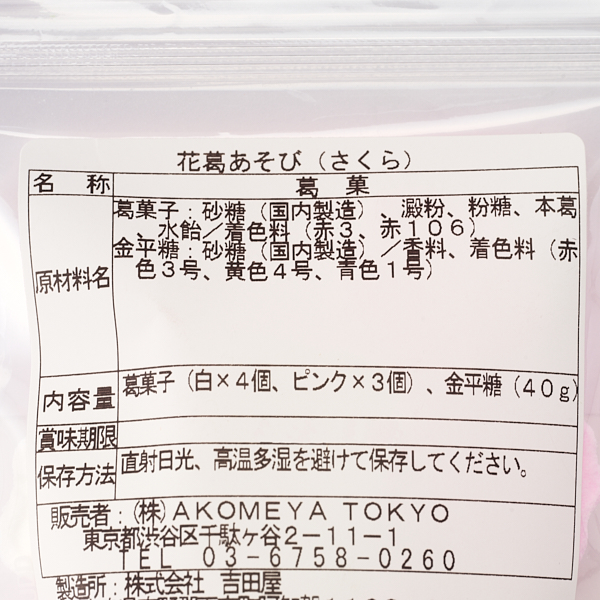 花葛あそび（さくら）
名 称 葛 菓
原材料名 葛菓子：砂糖（国内製造）、澱粉、粉糖、本葛
、水飴／着色料（赤３、赤１０６）
金平糖：砂糖（国内製造）／香料、着色料（赤
色３号、黄色４号、青色１号）
内容量 葛菓子（白×４個、ピンク×３個）、金平糖（４０ｇ）
賞味期限
保存方法 直射日光、高温多湿を避けて保存してください。
販売者：（株）ＡＫＯＭＥＹＡ ＴＯＫＹＯ
東京都渋谷区千駄ヶ谷２－１１－１
ＴＥＬ ０３－６７５８－０２６０
製造所：株式会社 吉田屋